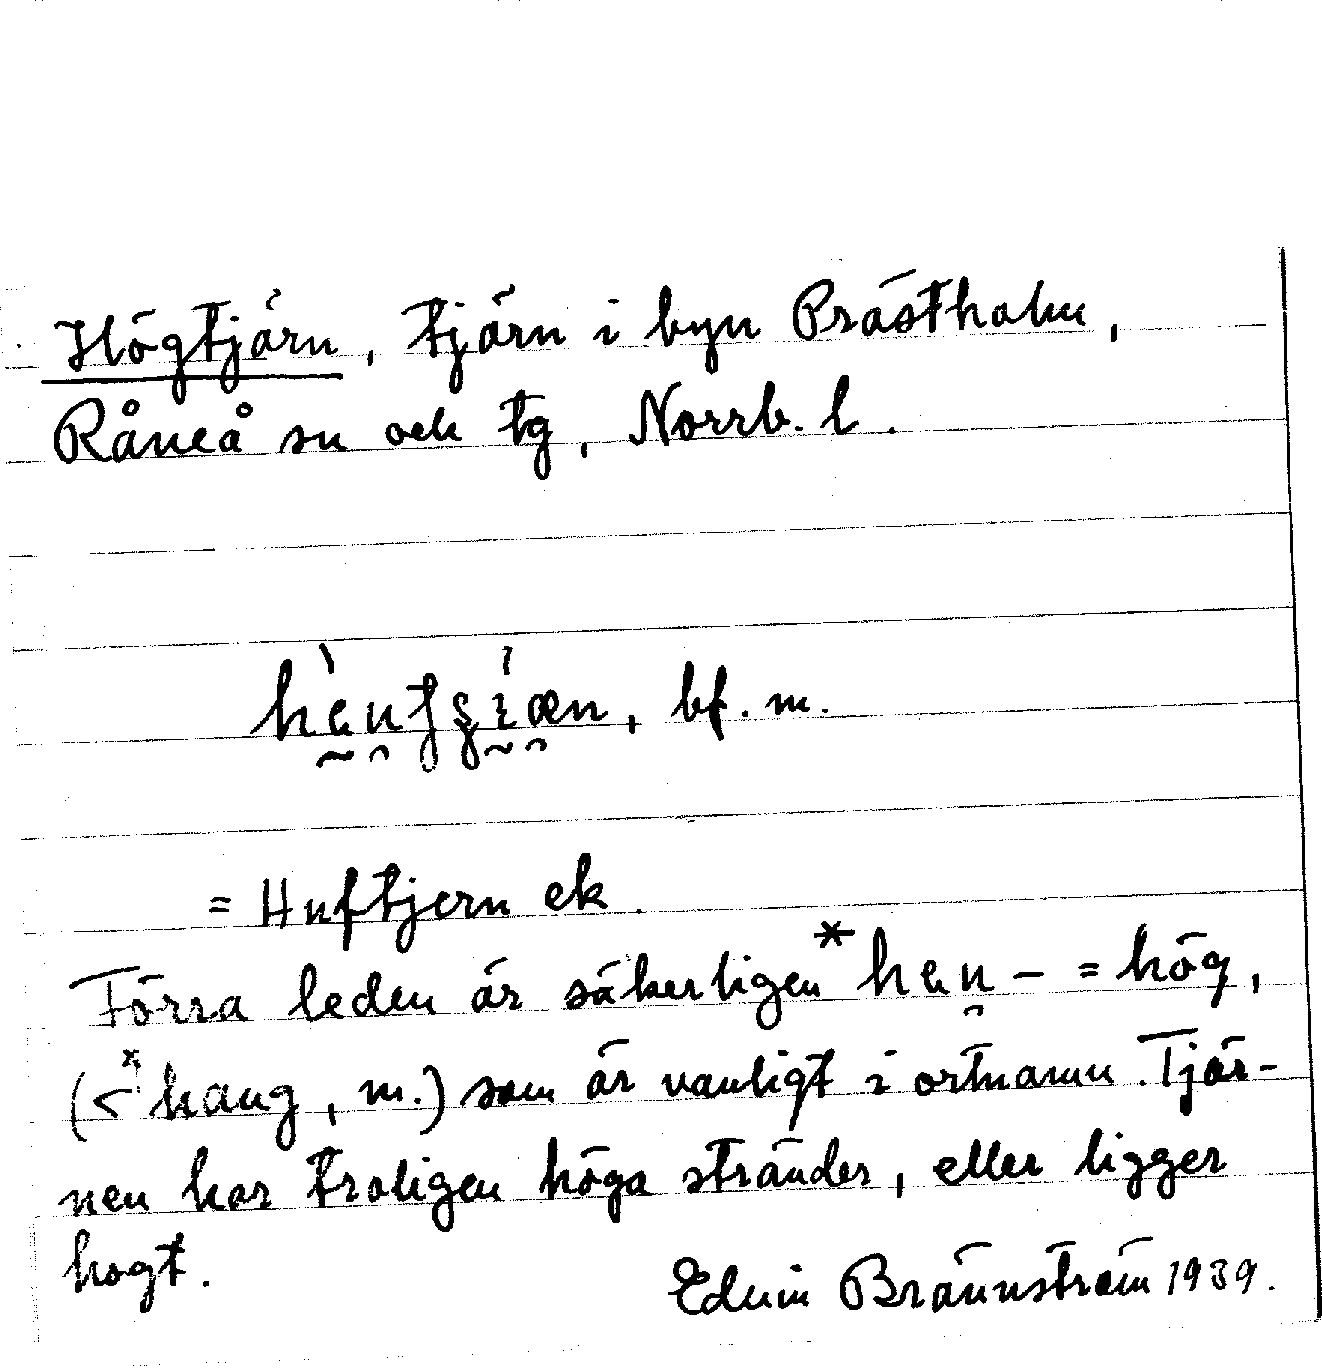 Högtjärn, tjärn i byn Prästholm,
Råneå sn och tg, Norrb. l.
bf. m.
= Huftjern ek.
Förra leden är säkerligen *hau̯- = hög,
(<*haug, m.) som är vanligt i ortnamn. Tjär-
nen har troligen höga stränder, eller ligger
högt.
Edvin Brännström 1939.